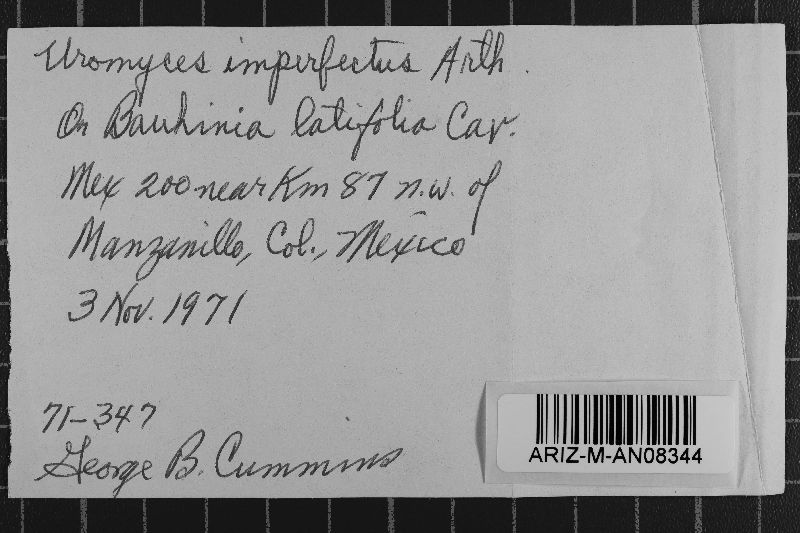 Uromyces imperfectus Arth.
On Bauhinia latifolia Cav.
Mex 200 near Km 87 n.w. of
Manzanillo, Col., México
3 Nov. 1971
71-347
George B. Cummins
ARIZ-M-AN08344